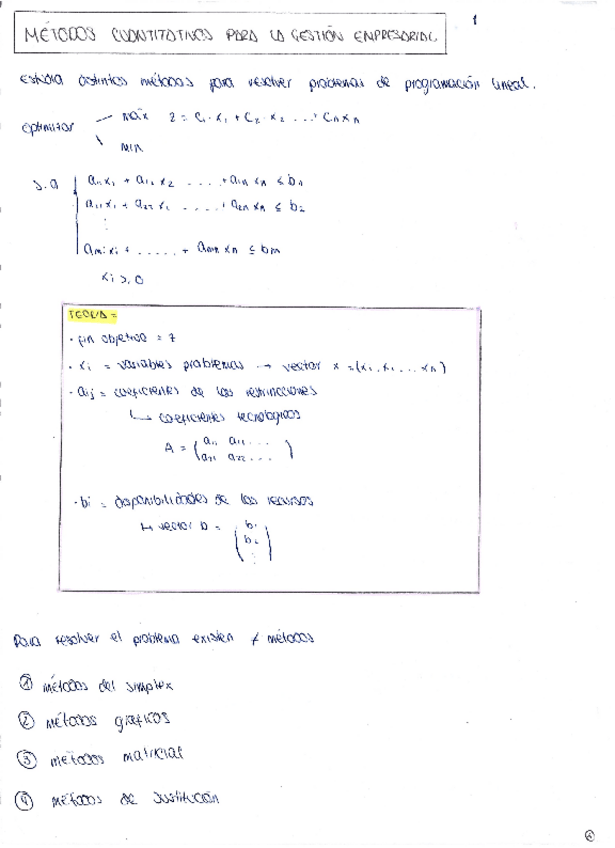 1
MÉTODOS CUANTITATIVOS PARA LA GESTIÓN EMPRESARIAL
Estudia distintos métodos para resolver problemas de programación lineal.
optimizar máx z = c₁·x₁ + c₂·x₂ ...+ cₙxₙ
min
s.a a₁₁x₁ + a₁₂x₂ .....+ a₁ₙxₙ ≤ b₁
a₂₁x₁ + a₂₂x₂ .....+ a₂ₙxₙ ≤ b₂
⋮
aₘ₁x₁ + ...... + aₘₙxₙ ≤ bₘ
xᵢ ≥ 0
TEORÍA =
· fin objetivo = z
· xᵢ = variables problemas → vector x = (x₁, x₂ ... xₙ)
· aᵢⱼ = coeficientes de las restricciones
↳ coeficientes tecnológicos
A = ( a₁₁ a₁₂ ...
a₂₁ a₂₂ ... )
· bᵢ = disponibilidades de los recursos
↳ vector b = ( b₁
b₂
⋮ )
Para resolver el problema existen ≠ métodos
① métodos del simplex
② métodos gráficos
③ métodos matricial
④ métodos de sustitución